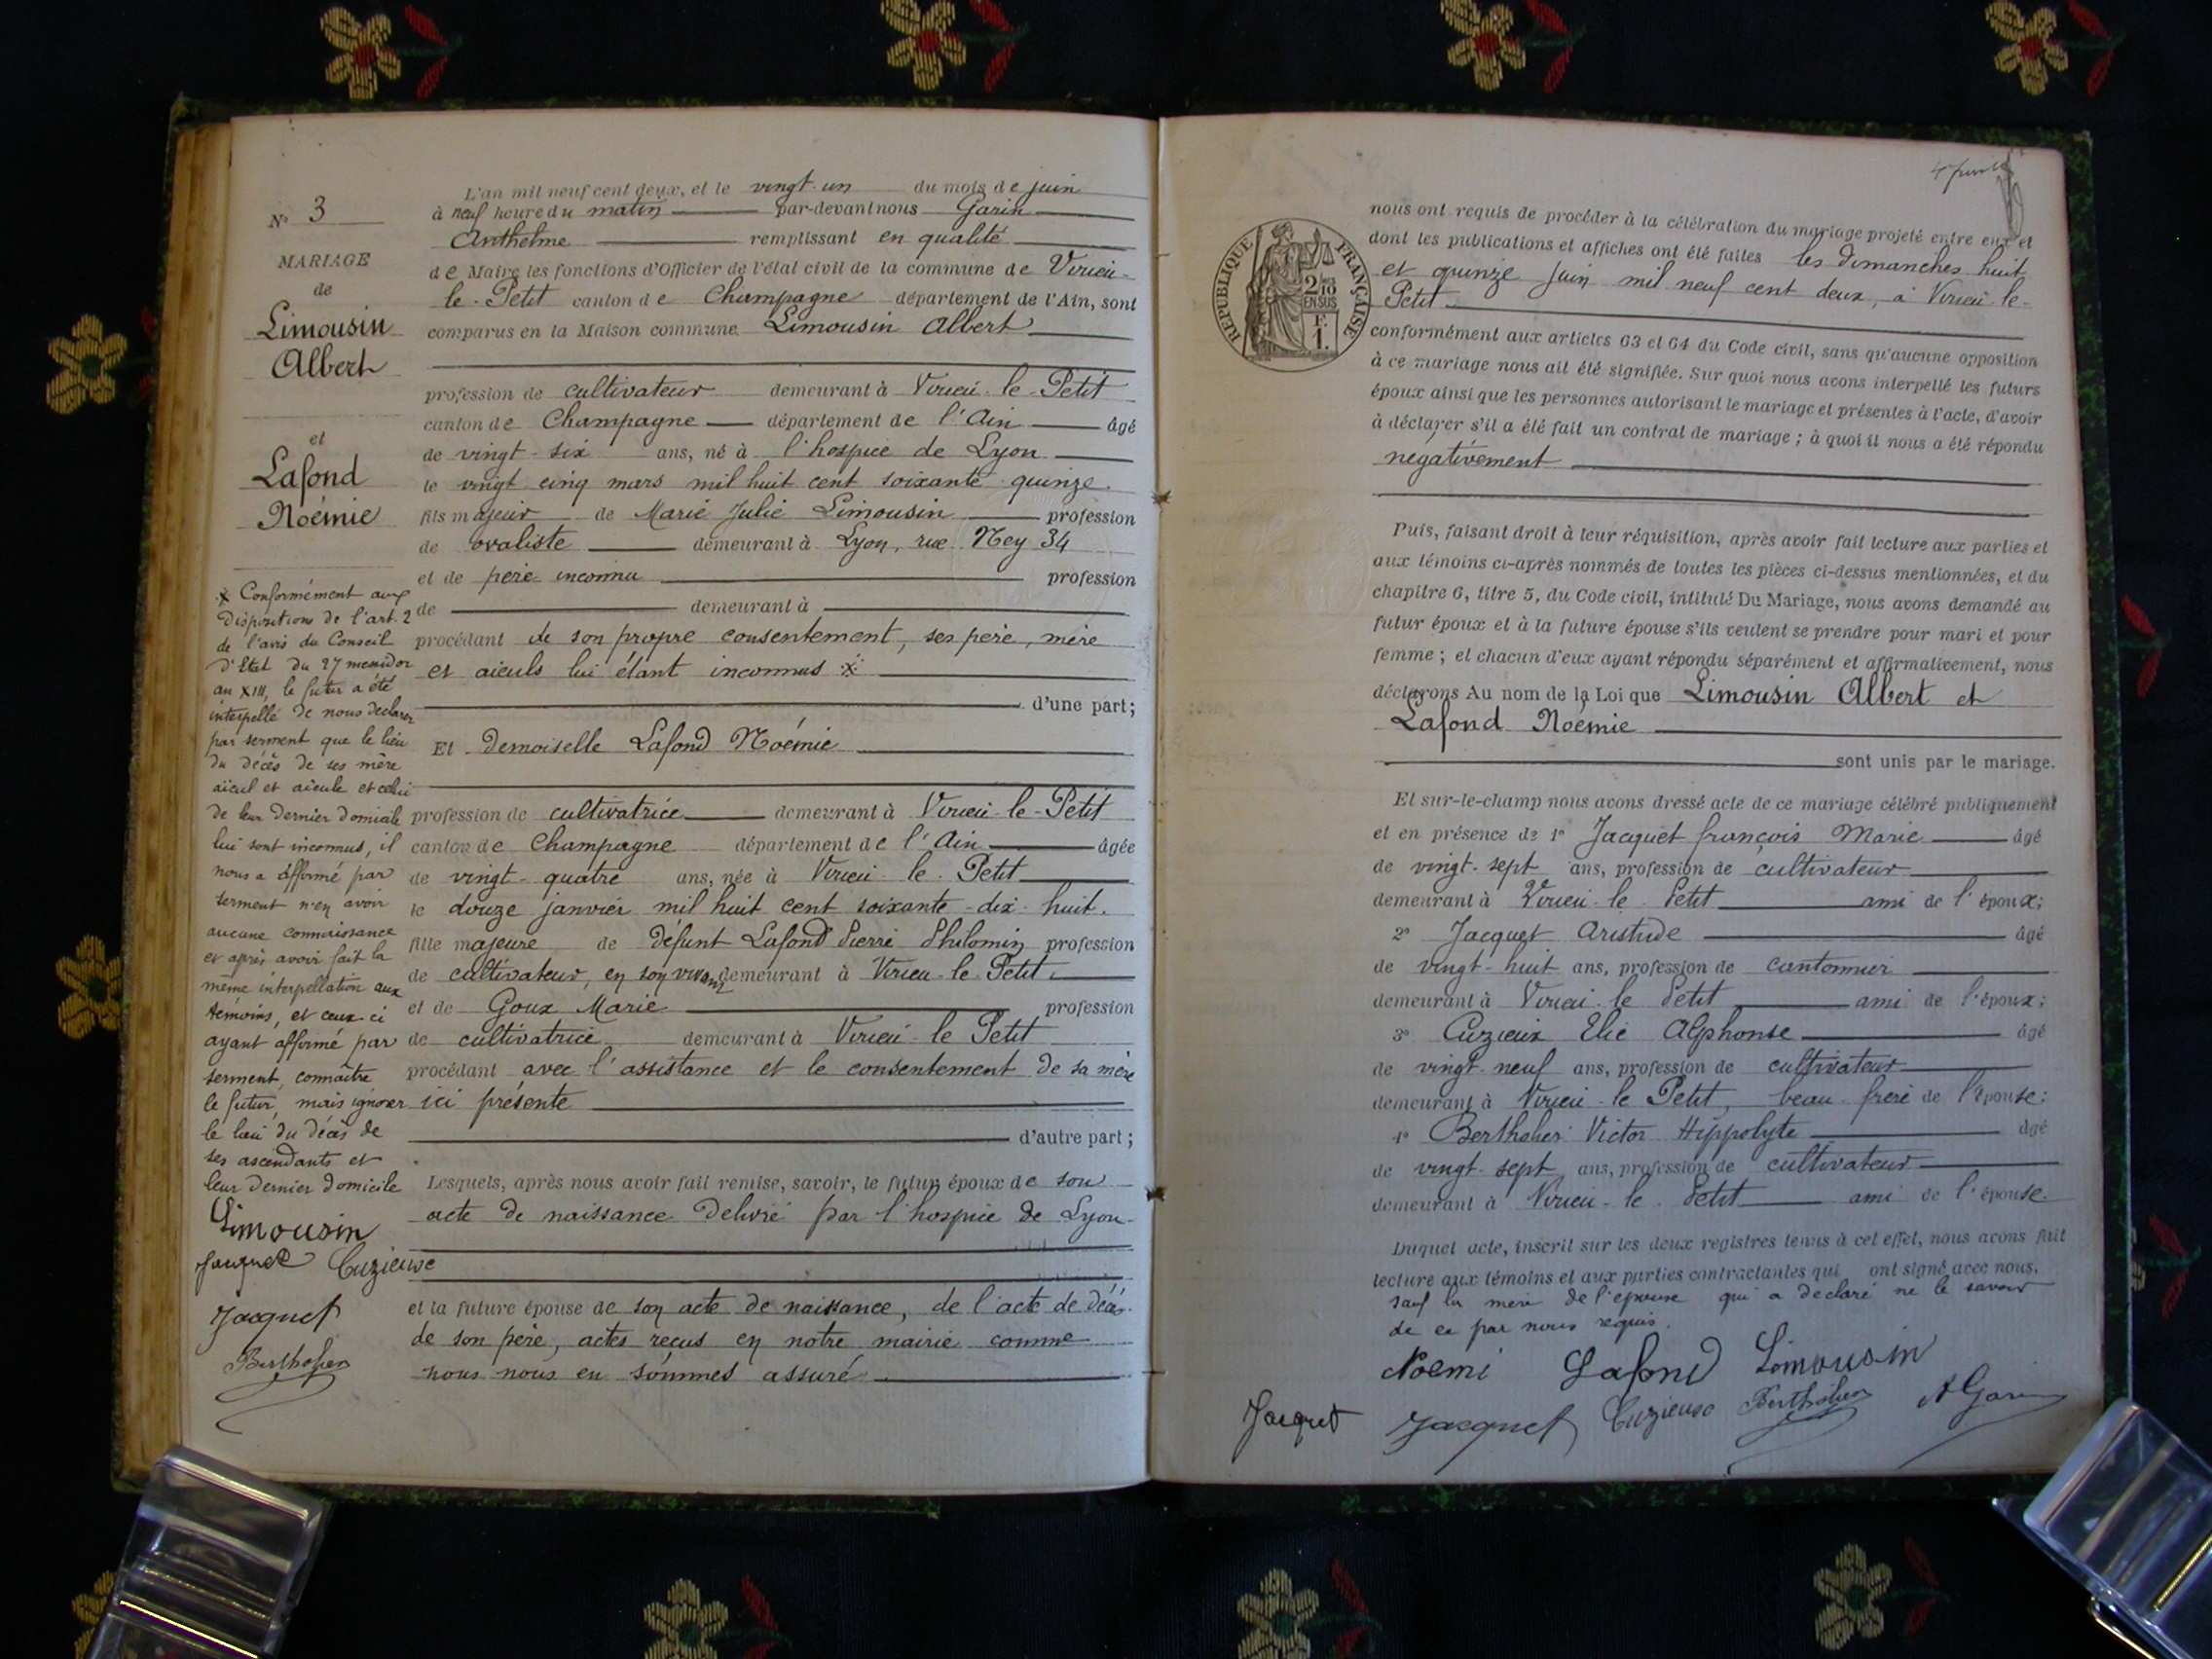 N° 3
MARIAGE
de
Limousin
Albert
et
Lafond
Noémie
L'an mil neuf cent deux, et le vingt-un du mois de juin
à neuf heure du matin par-devant nous Garin
Anthelme remplissant en qualité
de Maire les fonctions d'Officier de l'état civil de la commune de Virieu-
le-Petit canton de Champagne département de l'Ain, sont
comparus en la Maison commune Limousin Albert
profession de cultivateur demeurant à Virieu-le-Petit
canton de Champagne département de l'Ain âgé
de vingt-six ans, né à l'hospice de Lyon
le vingt cinq mars mil huit cent soixante quinze.
fils majeur de Marie Julie Limousin profession
de ovaliste demeurant à Lyon, rue Ney 34
et de père inconnu profession
de demeurant à
procédant de son propre consentement, ses père, mère
et aieuls lui étant inconnus ※
d'une part;
Et Demoiselle Lafond Noémie
profession de cultivatrice demeurant à Virieu-le-Petit
canton de Champagne département de l'Ain âgée
de vingt-quatre ans, née à Virieu-le-Petit
le douze janvier mil huit cent soixante-dix-huit.
fille majeure de défunt Lafond Pierre Philomin profession
de cultivateur, en son vivant demeurant à Virieu-le-Petit.
et de Goux Marie profession
de cultivatrice demeurant à Virieu-le Petit
procédant avec l'assistance et le consentement de sa mère
ici présente
d'autre part;
Lesquels, après nous avoir fait remise, savoir, le futur époux de son
acte de naissance délivré par l'hospice de Lyon-
et la future épouse de son acte de naissance, de l'acte de décès
de son père, actes reçus en notre mairie comme
nous nous en sommes assuré
※ Conformément aux
dispositions de l'art. 2
de l'avis du Conseil
d'Etat du 27 messidor
an XIII, le futur a été
interpellé de nous déclarer
par serment que le lieu
du décès de ses mère
aïeul et aïeule et celui
de leur dernier domicile
lui sont inconnus, il
nous a affirmé par
serment n'en avoir
aucune connaissance
et après avoir fait la
même interpellation aux
témoins, et ceux-ci
ayant affirmé par
serment, connaître
le futur, mais ignorer
le lieu du décès de
ses ascendants et
leur dernier domicile
Limousin
Jacquet Cuzieux
Jacquet
Berthelier
REPUBLIQUE FRANÇAISE
2/10
EN SUS
F.
1.
nous ont requis de procéder à la célébration du mariage projeté entre eux et
dont les publications et affiches ont été faites les dimanches huit
et quinze juin mil neuf cent deux, à Virieu-le-
Petit
conformément aux articles 63 et 64 du Code civil, sans qu'aucune opposition
à ce mariage nous ait été signifiée. Sur quoi nous avons interpellé les futurs
époux ainsi que les personnes autorisant le mariage et présentes à l'acte, d'avoir
à déclarer s'il a été fait un contrat de mariage; à quoi il nous a été répondu
négativement
Puis, faisant droit à leur réquisition, après avoir fait lecture aux parties et
aux témoins ci-après nommés de toutes les pièces ci-dessus mentionnées, et du
chapitre 6, titre 5, du Code civil, intitulé Du Mariage, nous avons demandé au
futur époux et à la future épouse s'ils veulent se prendre pour mari et pour
femme; et chacun d'eux ayant répondu séparément et affirmativement, nous
déclarons Au nom de la Loi que Limousin Albert et
Lafond Noémie
sont unis par le mariage.
Et sur-le-champ nous avons dressé acte de ce mariage célébré publiquement
et en présence de 1° Jacquet françois Marie âgé
de vingt-sept ans, profession de cultivateur
demeurant à Virieu-le-Petit ami de l'époux;
2° Jacquet Aristide âgé
de vingt-huit ans, profession de cantonnier
demeurant à Virieu-le Petit ami de l'époux;
3° Cuzieux Elie Alphonse âgé
de vingt-neuf ans, profession de cultivateur
demeurant à Virieu-le Petit, beau-frère de l'épouse;
4° Berthelier Victor Hippolyte âgé
de vingt-sept ans, profession de cultivateur
demeurant à Virieu-le-Petit ami de l'épouse.
Duquel acte, inscrit sur les deux registres tenus à cet effet, nous avons fait
lecture aux témoins et aux parties contractantes qui ont signé avec nous.
sauf la mère de l'épouse qui a déclaré ne le savoir
de ce par nous requis.
Noemi Lafond Limousin
Jacquet Jacquet Cuzieux Berthelier A Garin